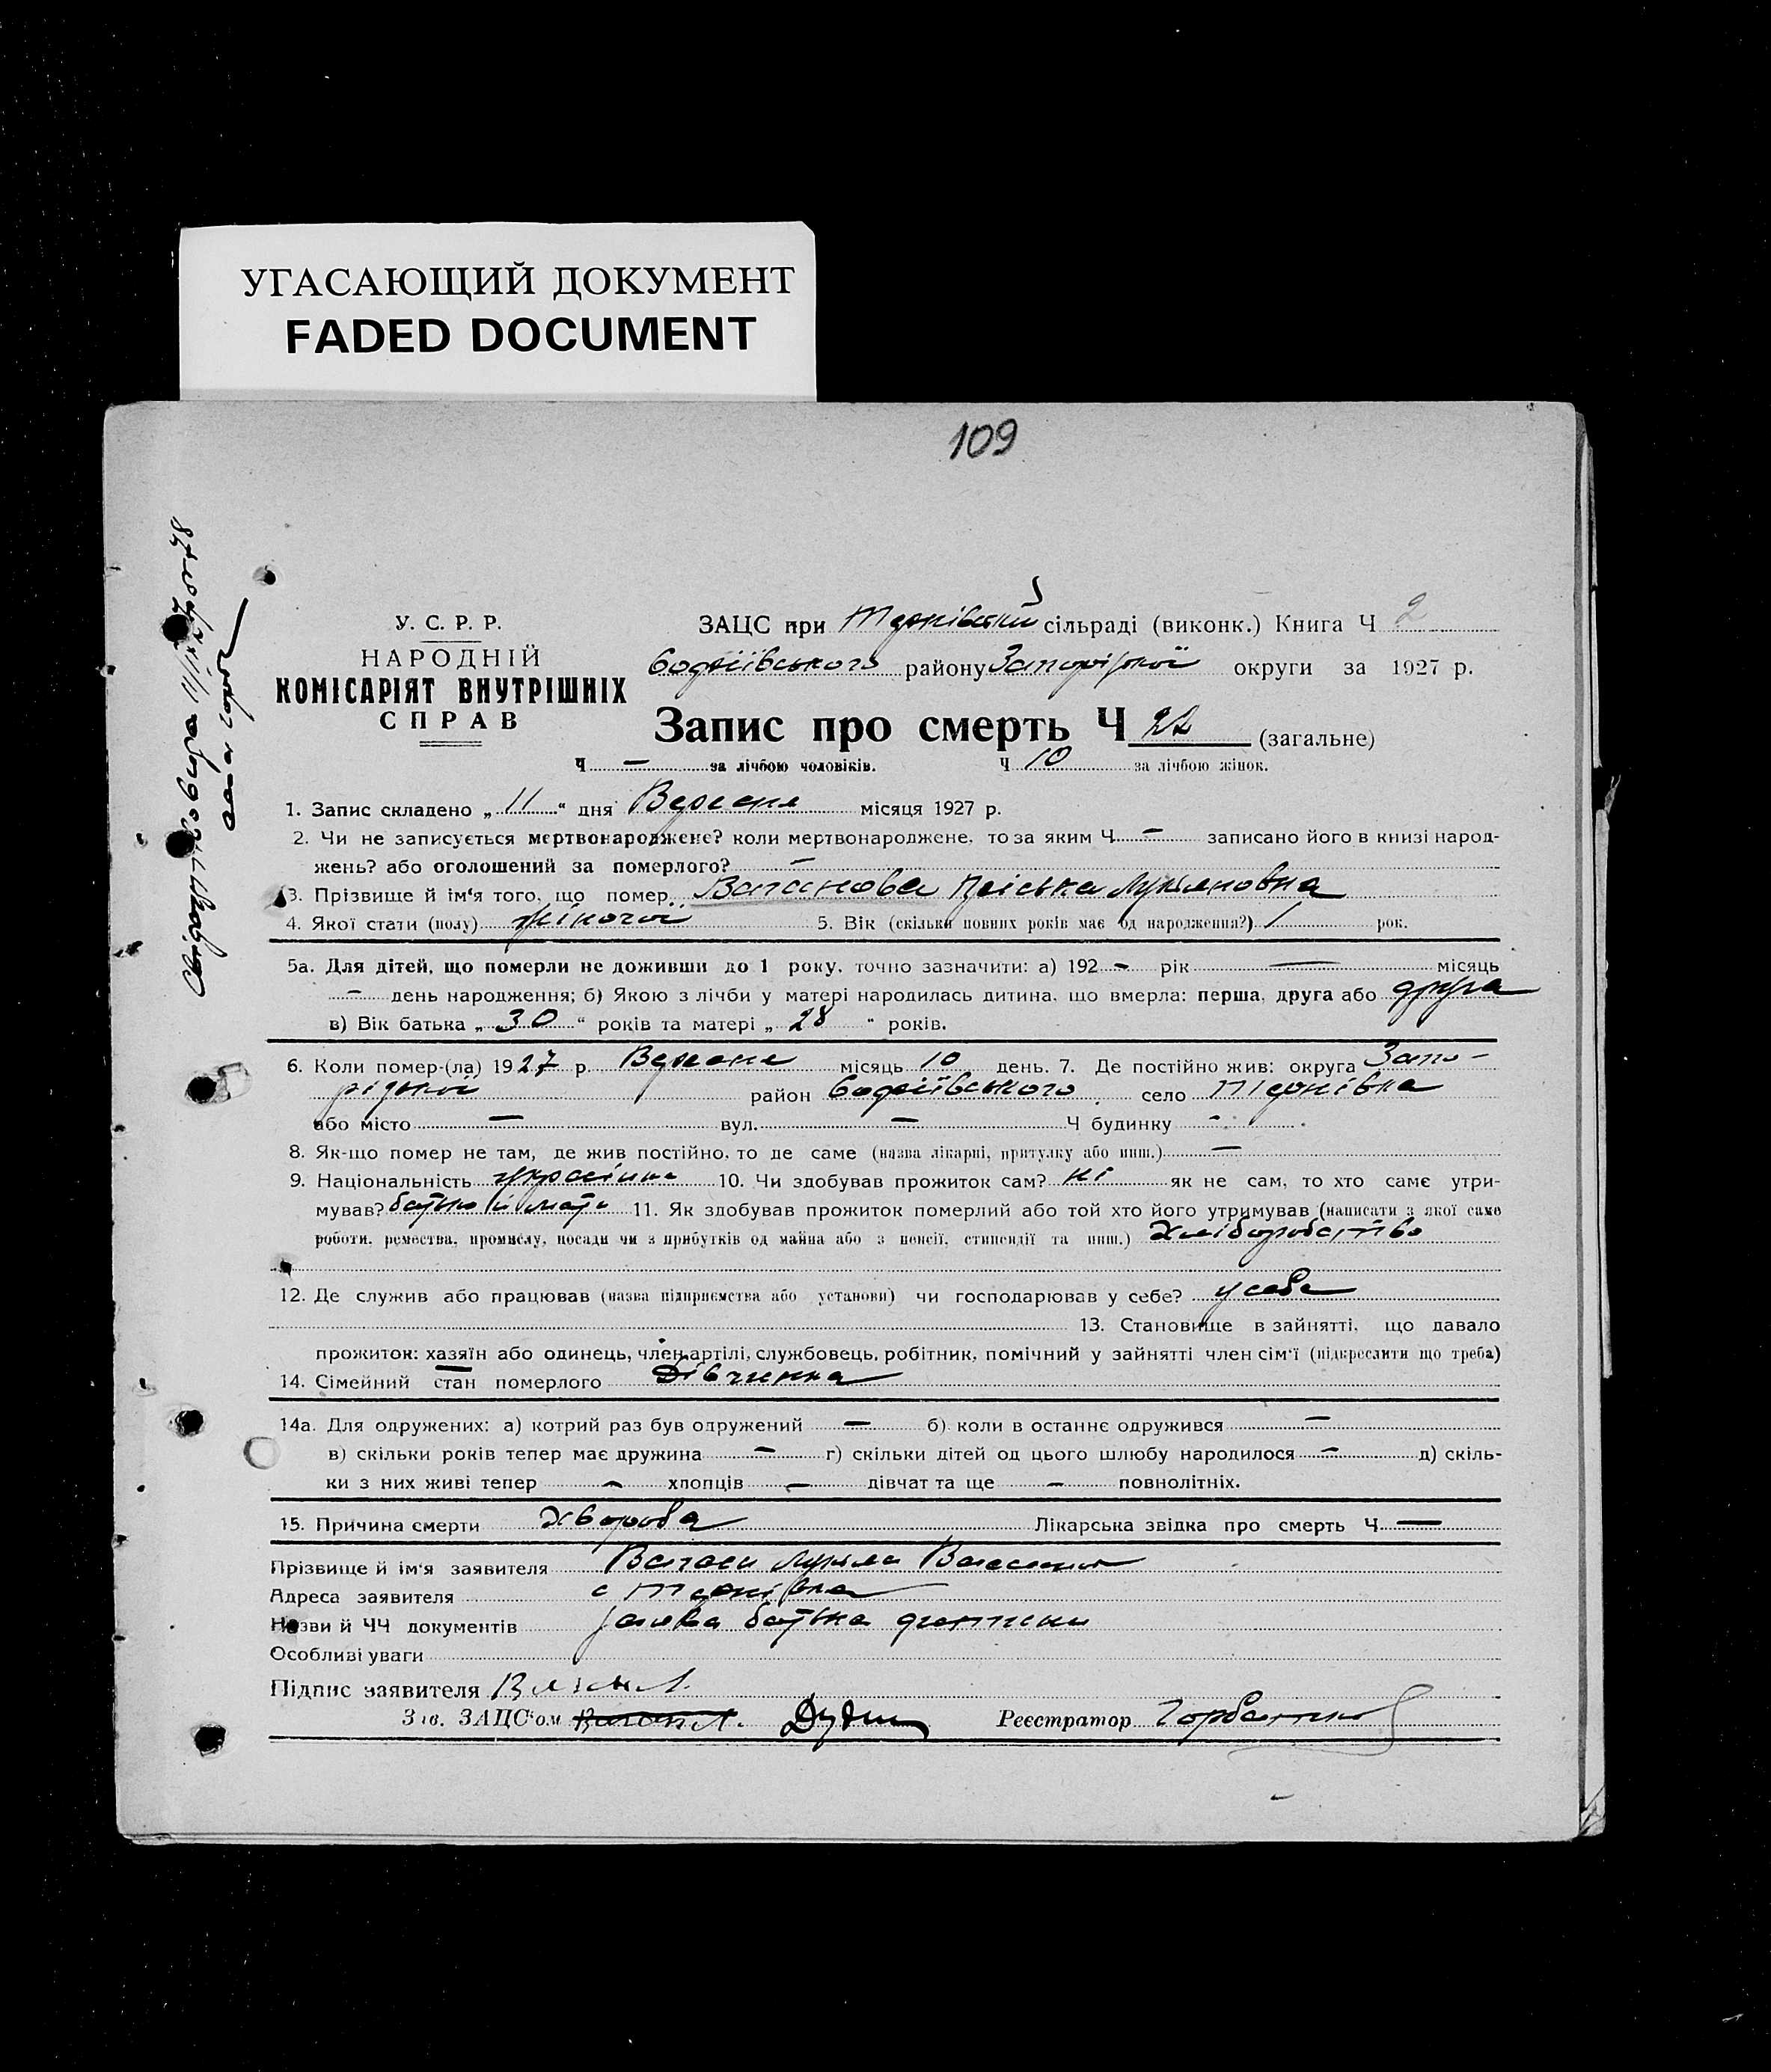 УГАСАЮЩИЙ ДОКУМЕНТ
FADED DOCUMENT
109
У. С. Р. Р.
НАРОДНІЙ
КОМІСАРІЯТ ВНУТРІШНІХ
СПРАВ
ЗАЦС при Тернівській сільраді (виконк.) Книга Ч 2
району Запорізької округи за 1927 р.
Запис про смерть Ч 22 (загальне)
Ч — за лічбою чоловіків. Ч 10 за лічбою жінок.
1. Запис складено „ 11 “ дня Вересня місяця 1927 р.
2. Чи не записується мертвонароджене? коли мертвонароджене, то за яким Ч — записано його в книзі народ-
жень? або оголошений за померлого? —
3. Прізвище й ім'я того, що помер Лукяновна
4. Якої стати (полу) жіночої 5. Вік (скільки повних років має од народження?) 1 рок.
5а. Для дітей, що померли не доживши до 1 року, точно зазначити: а) 192 — рік — місяць
— день народження; б) Якою з лічби у матері народилась дитина, що вмерла: перша, друга або друга
в) Вік батька „ 30 “ років та матері „ 28 “ років.
6. Коли помер-(ла) 1927 р. Вересня місяць 10 день. 7. Де постійно жив: округа Запо-
різької район село Тернівка
або місто — вул. — Ч будинку -
8. Як-що помер не там, де жив постійно, то де саме (назва лікарні, притулку або инш.) —
9. Національність українка 10. Чи здобував прожиток сам? ні як не сам, то хто саме утри-
мував? батько й мати 11. Як здобував прожиток померлий або той хто його утримував (написати з якої саме
роботи, ремества, промислу, посади чи з прибутків од майна або з пенсії, стипендії та инш.) Хліборобство
12. Де служив або працював (назва підприємства або установи) чи господарював у себе? у себе
13. Становище в зайнятті, що давало
прожиток: хазяїн або одинець, член артілі, службовець, робітник, помічний у зайнятті член сім'ї (підкреслити що треба)
14. Сімейний стан померлого Дівчинка
14а. Для одружених: а) котрий раз був одружений — б) коли в останнє одружився —
в) скільки років тепер має дружина — г) скільки дітей од цього шлюбу народилося — д) скіль-
ки з них живі тепер — хлопців — дівчат та ще — повнолітніх.
15. Причина смерти Хвороба Лікарська звідка про смерть Ч —
Прізвище й ім'я заявителя
Адреса заявителя с Тернівка
Назви й ЧЧ документів заява батька дитини
Особливі уваги
Підпис заявителя
Зав. ЗАЦС'ом
Реєстратор